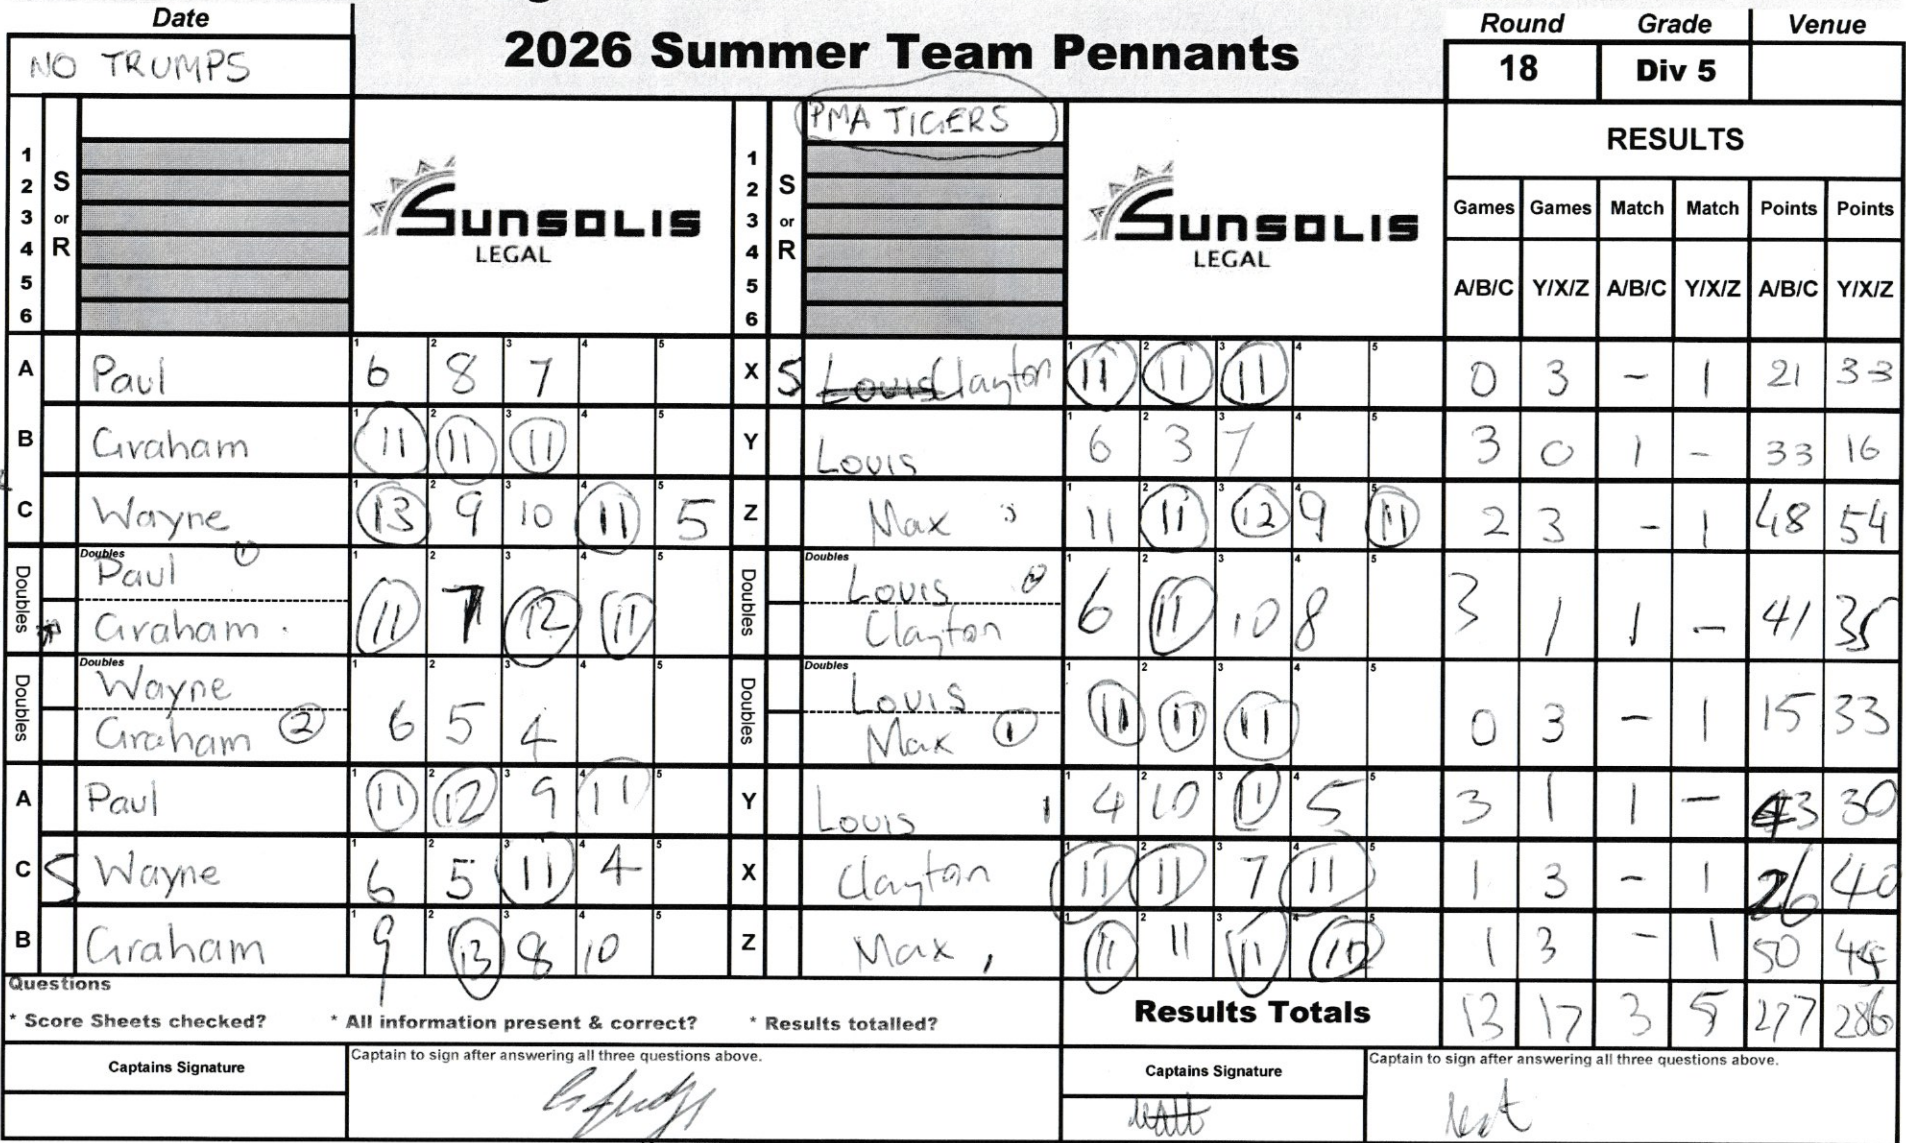 Date
NO TRUMPS
2026 Summer Team Pennants
Round Grade Venue
18 Div 5
PMA TIGERS
RESULTS
1 2 3 4 5 6
S or R
SUNSOLIS
LEGAL
1 2 3 4 5 6
S or R
SUNSOLIS
LEGAL
Games Games Match Match Points Points
A/B/C Y/X/Z A/B/C Y/X/Z A/B/C Y/X/Z
A Paul 6 8 7 X S Louis Clayton 11 11 11 0 3 - 1 21 33
B Graham 11 11 11 Y Louis 6 3 7 3 0 1 - 33 16
C Wayne 13 9 10 11 5 Z Max 11 11 12 9 11 2 3 - 1 48 54
Doubles Paul 1 Graham 11 7 12 11 Doubles Louis 2 Clayton 6 11 10 8 3 1 1 - 41 35
Doubles Wayne Graham 2 6 5 4 Doubles Louis Max 1 11 11 11 0 3 - 1 15 33
A Paul 11 12 9 11 Y Louis 1 4 10 11 5 3 1 1 - 43 30
C S Wayne 6 5 11 4 X Clayton 11 11 7 11 1 3 - 1 26 40
B Graham 9 13 8 10 Z Max , 11 11 11 1 3 - 1 50 44
Questions
* Score Sheets checked? * All information present & correct? * Results totalled?
Results Totals 13 17 3 5 277 286
Captains Signature
Captain to sign after answering all three questions above.
Captains Signature
Captain to sign after answering all three questions above.